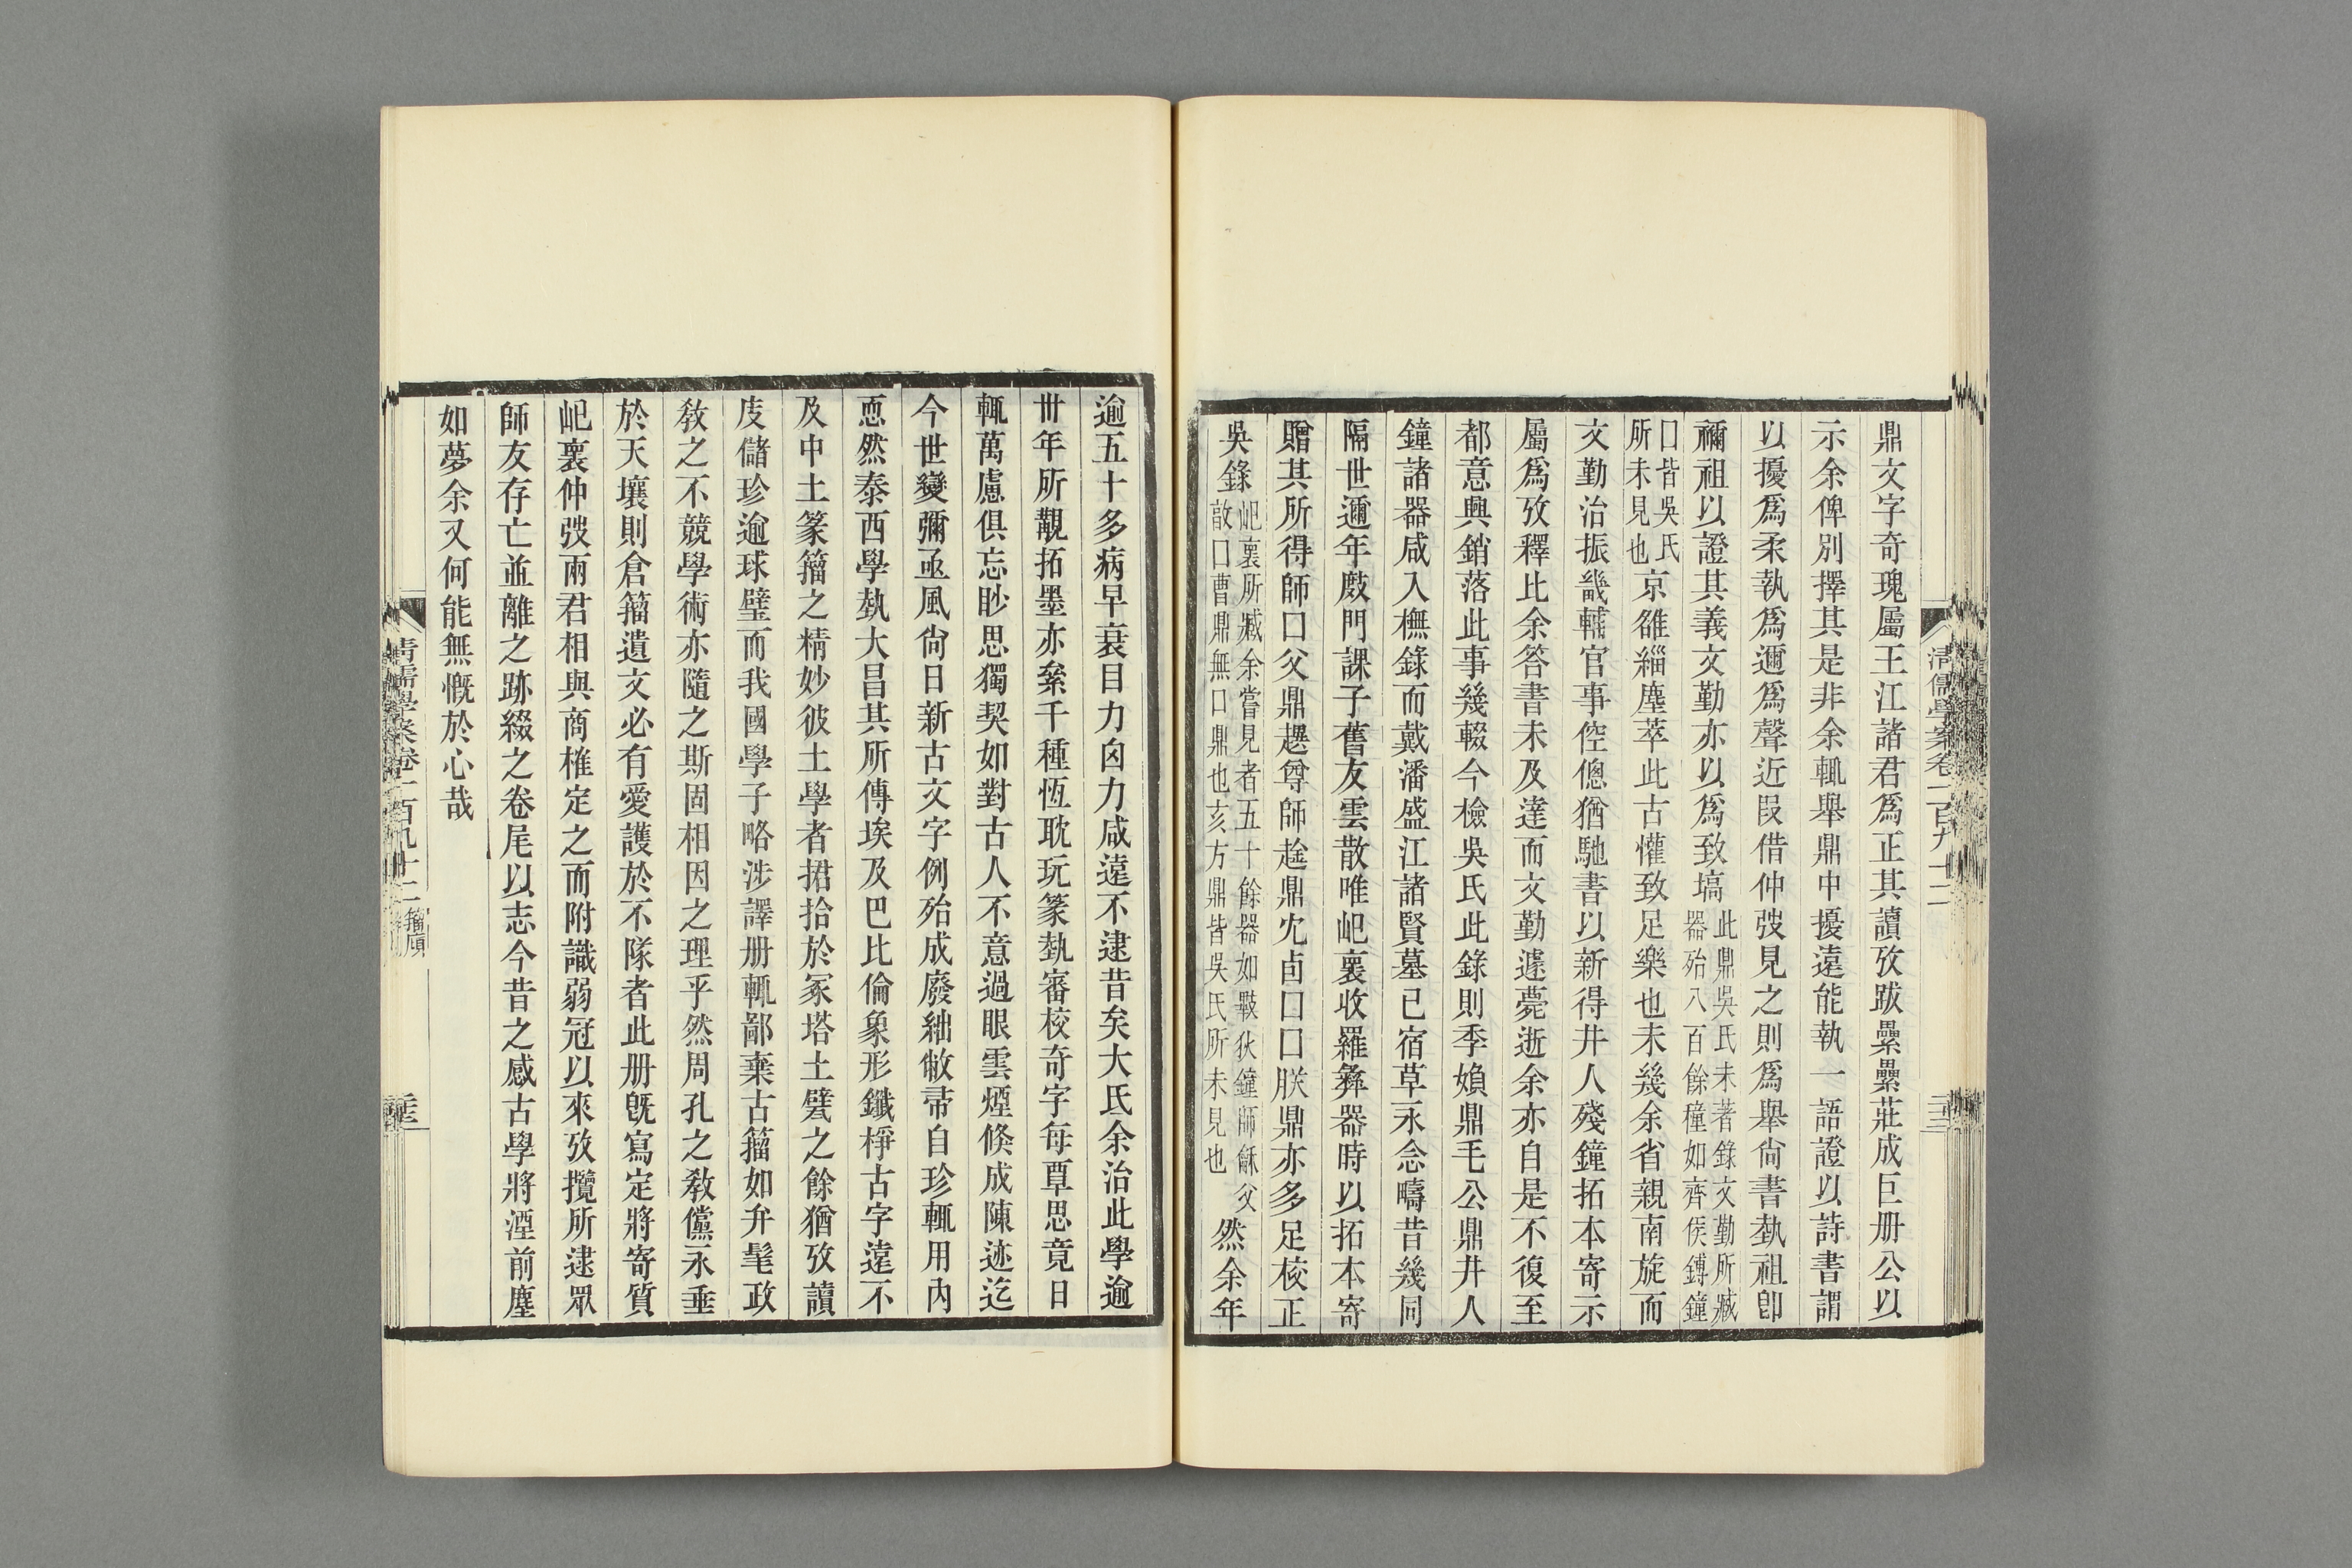 鼎文字奇瑰屬王江諸君爲正其讀攷跋纍纍莊成巨册公以
示余俾別擇其是非余輒舉鼎中擾遠能執一語證以詩書謂
以擾爲柔執爲邇爲聲近叚借仲弢見之則爲舉尙書埶祖卽
禰祖以證其義文勤亦以爲致塙此鼎吳氏未著錄文勤所臧
器殆八百餘種如齊侯鎛鐘
囗皆吳氏
所未見也京雒緇塵萃此古懽致足樂也未幾余省親南旋而
文勤治振畿輔官事倥傯猶馳書以新得井人殘鐘拓本寄示
屬爲攷釋比余答書未及達而文勤遽薨逝余亦自是不復至
都意興銷落此事幾輟今檢吳氏此錄則季媍鼎毛公鼎井人
鐘諸器咸入橅錄而戴潘盛江諸賢墓已宿草永念疇昔幾同
隔世邇年㪇門課子舊友雲散唯屺裏收羅彝器時以拓本寄
贈其所得師囗父鼎趩尊師趛鼎冘卣囗囗朕鼎亦多足校正
吳錄屺裏所臧余嘗見者五十餘器如斁狄鐘師龢父
敔囗曹鼎無囗鼎也亥方鼎皆吳氏所未見也然余年
清儒學案卷一百九十二
逾五十多病早衰目力囟力咸遠不逮昔矣大氐余治此學逾
卅年所覯拓墨亦絫千種恆耽玩篆埶審校奇字每覃思竟日
輒萬慮俱忘眇思獨契如對古人不意過眼雲煙倏成陳迹迄
今世變彌亟風尙日新古文字例殆成廢絀敝帚自珍輒用內
恧然泰西學埶大昌其所傳埃及巴比倫象形鐵楟古字遠不
及中土篆籀之精妙彼土學者捃拾於冢塔土甓之餘猶攷讀
庋儲珍逾球璧而我國學子略涉譯册輒鄙棄古籀如弁髦政
敎之不競學術亦隨之斯固相因之理乎然周孔之敎儻永垂
於天壤則倉籀遺文必有愛護於不隊者此册旣寫定將寄質
屺裏仲弢兩君相與商榷定之而附識弱冠以來攷攬所逮眾
師友存亡並離之跡綴之卷尾以志今昔之感古學將湮前塵
如夢余又何能無慨於心哉
清儒學案卷一百九十二 籀廎